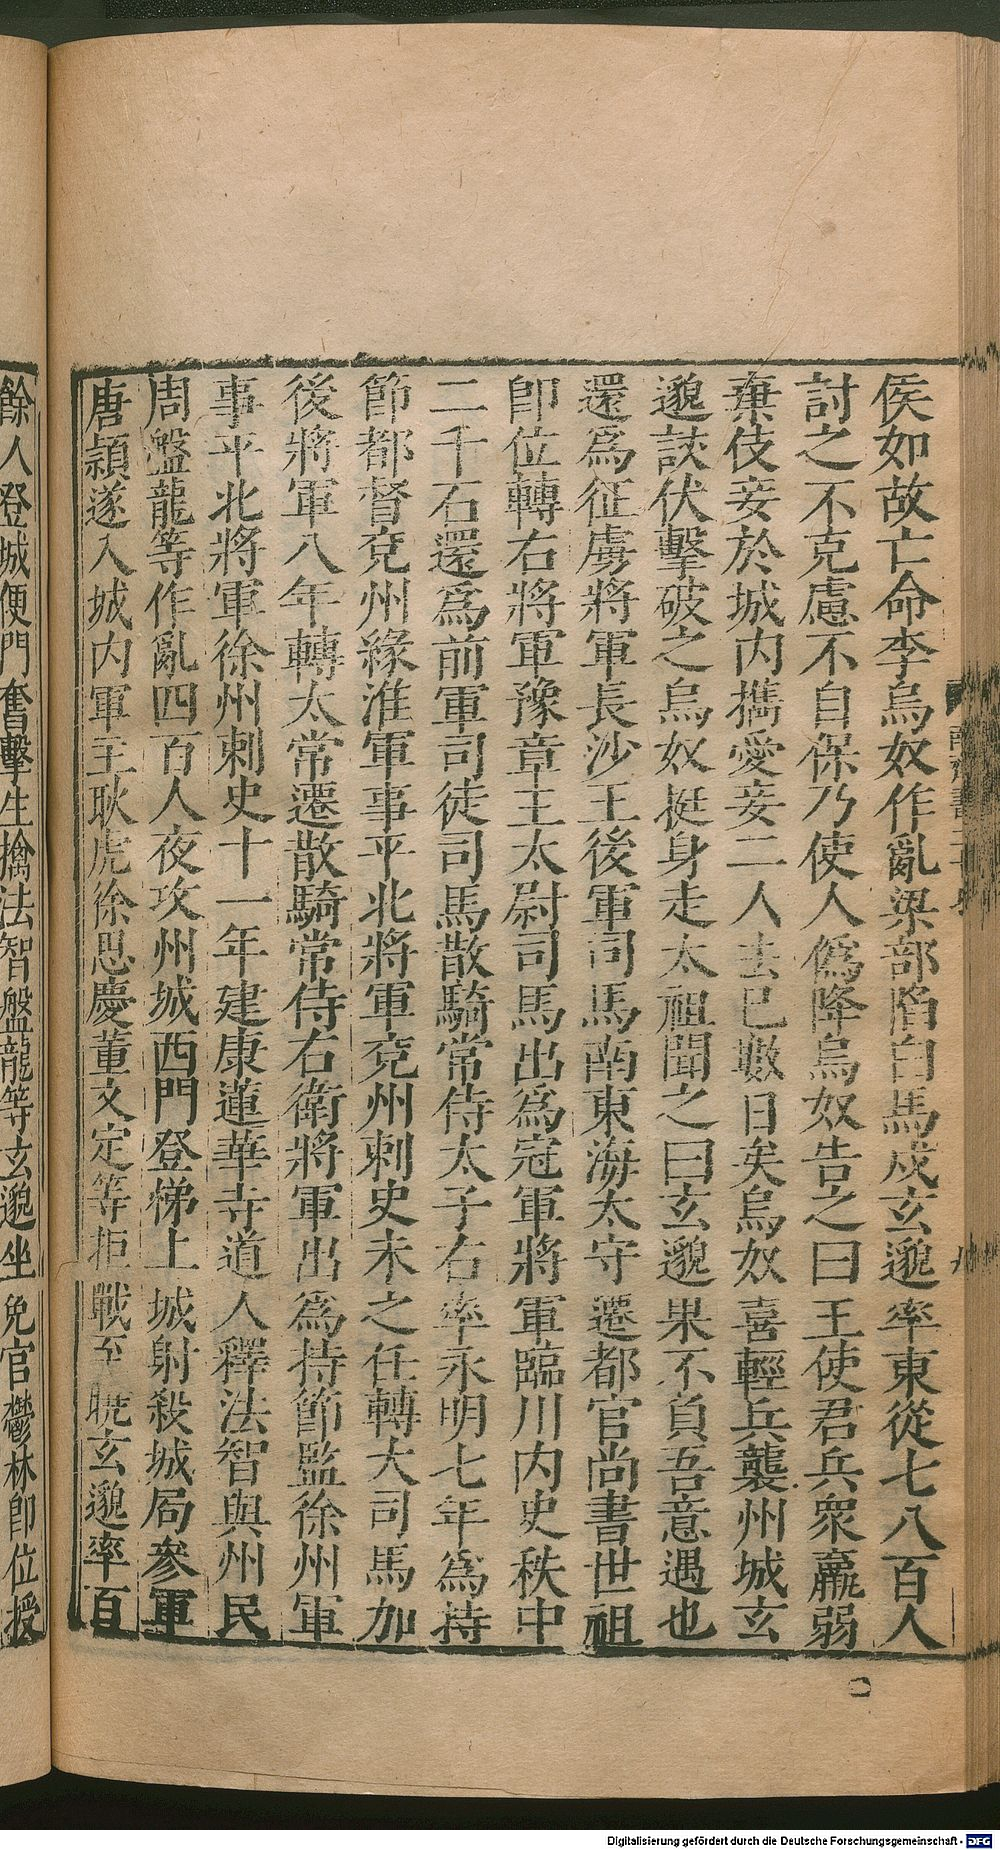 侯如故亡命李烏奴作亂梁部陷白馬戍玄邈率東從七八百人
討之不克慮不自保乃使人僞降烏奴告之曰王使君兵衆羸弱
棄伎妾於城內攜愛妾二人去已數日矣烏奴喜輕兵襲州城玄
邈設伏擊破之烏奴挺身走太祖聞之曰玄邈果不負吾意遇也
還爲征虜將軍長沙王後軍司馬南東海太守遷都官尚書世祖
卽位轉右將軍豫章王太尉司馬出爲冠軍將軍臨川內史秩中
二千石還爲前軍司徒司馬散騎常侍太子右率永明七年爲持
節都督兗州緣淮軍事平北將軍兗州刺史未之任轉大司馬加
後將軍八年轉太常遷散騎常侍右衛將軍出爲持節監徐州軍
事平北將軍徐州刺史十一年建康蓮華寺道人釋法智與州民
周盤龍等作亂四百人夜攻州城西門登梯上城射殺城局參軍
唐潁遂入城內軍主耿虎徐思慶董文定等拒戰至曉玄邈率百
餘人登城便門奮擊生擒法智盤龍等玄邈坐免官鬱林卽位授
Digitalisierung gefördert durch die Deutsche Forschungsgemeinschaft - DFG